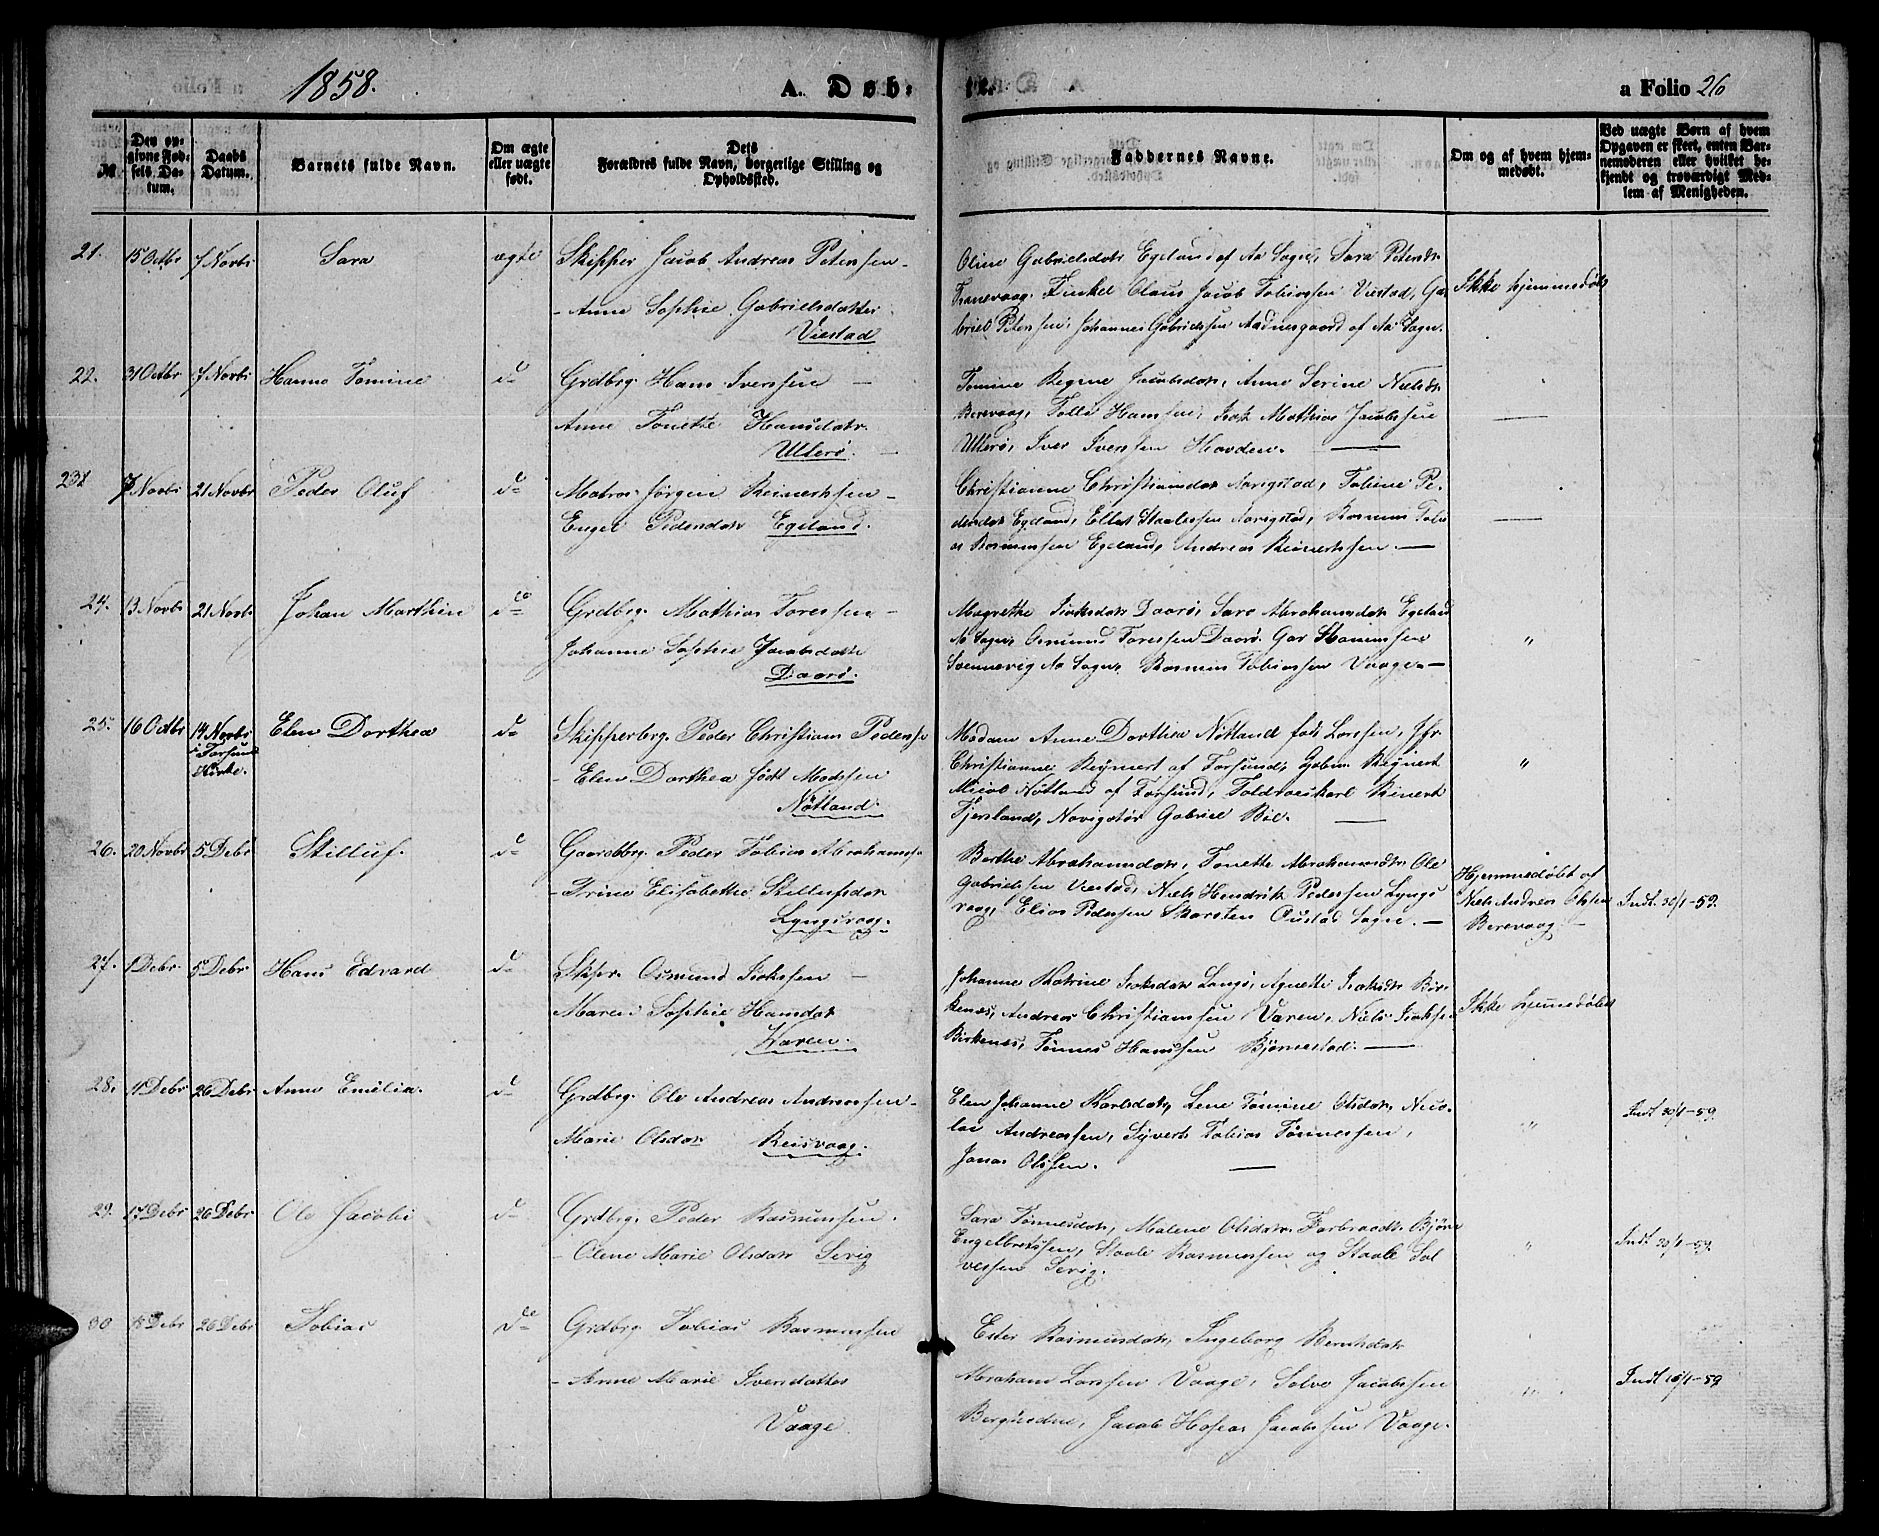 1858.
A. Døbte.
a Folio 26
№
Den opgivne Fødsels Datum.
Daabs Datum.
Barnets fulde Navn.
Om ægte eller uægte født.
Dets Forældres fulde Navn, borgerlige Stilling og Opholdssted.
Faddernes Navne.
Om og af hvem hjemmedøbt.
Ved uægte Børn af hvem Opgaven er skeet, enten Barnemoderen eller hvilket bekjendt og troværdigt Medlem af Menigheden.
21. 15 Octbr 7 Novbr Sara ægte Skipper Jacob Andreas Petersen -
- Anne Sophie Gabrielsdatter
Viestad
Oline Gabrielsdatr Egeland af Aa Sogn, Sara Petersdr
Tranevaag. Finkel Claus Jacob Tobiassen Viestad, Ga-
briel Petersen, Johannes Gabrielssen Aadnesgaard af Aa Sogn.
Ikke hjemmedøbt
22. 31 Octbr 7 Novbr Hanna Tomine do Grdbrg. Hans Iversen -
Anne Tonette Hansdatr.
Ulterø.
Tomine Regine Jacobsdatr, Anne Serine Nielsdr
Berevaag, Tolle Hanssen, Isak Mathias Jacobssen
Ulterø, Iver Iverssen Hovden.
23. 7 Novbr 21 Novbr Peder Oluf do Matros Jørgen Reinertsen -
Engel Pedersdatr Egeland.
Christianne Christiansdatr Narvigstad, Tobine Pe-
dersdatr Egeland, Ellert Staalessen Narvigstad, Rasmus Tobi-
as Rasmussen Egeland, Andreas Reinertssen.
24. 13 Novbr 21 Novbr Johan Marthin do Grdbrg. Mathias Toressen -
Johanne Sophie Jacobsdatr
Daarø.
Magrethe Isaksdatr Daarø, Sara Abrahamsdatr Egeland
Aa Sogn, Osmund Toressen Daarø. Gar Hanssen
Svennevig Aa Sogn, Rasmus Tobiassen Vaage.
"
25. 16 Octbr 14 Novbr Elen Dorthea do Skipperbrg. Peder Christian Pedersen
i Farsund
Kirke.
- Elen Dorthea født Madssen
Nøtland.
Madam Anne Dorthea Nøtland fød Larssen, Jfr.
Christianne Reinert af Farsund, Gabr. Reinert
Micol Nøtland af Farsund, Toldroeskarl Reinert
Fjersland, Navigatør Gabriel Bøe.
"
26. 20 Novbr 5 Debr Stilluf. do Gaardbrg. Peder Tobias Abrahamss.
- Trine Elisabethe Stillufsdatr
Lyngsvaag.
Berthe Abrahamsdatr, Tonette Abrahamsdtr Ole
Gabrielssen Viestad, Niels Hendrik Pederssen Lyngs
vaag, Elias Pederssen Skarsten Oustad Sogn.
Hjemmedøbt af
Niels Andreas Olssen
Berevaag
Indt. 30/1-59.
27. 1 Debr. 5 Debr. Hans Edvard do Skpr. Osmund Isakssen -
Maren Sophie Hansdatr
Varen.
Johanne Katrine Isaksdatr Langø, Agnette Isaksdr Bir-
kenes, Andreas Christianssen Varen, Niels Isakssen
Birkenes, Tønnes Hanssen Bjørnestad.
Ikke hjemedøbt
28. 4 Debr 26 Debr Anne Emilia. do Grdbrg. Ole Andreas Andreassen -
Marie Olsdatr Reisvaag.
Elen Johanne Karlsdatr, Lene Tomine Olsdatr, Nico-
lai Andreassen, Syvert Tobias Tønnessen,
Jonas Olssen.
"
Indt. 30/1-59.
29. 17 Debr 26 Debr Ole Jacobi do Grdbrg. Peder Rasmussen.
- Olene Marie Olsdatr Servig
Sara Tønnesdatr, Malene Olsdatr Farbraadt, Bjørn
Engelbretssen, Staale Rasmussen og Staale Sal
vessen Servig.
"
Indt. 30/1-59.
30 18 Debr 26 Debr Tobias do Grdbrg Tobias Rasmussen
- Anne Marie Iversdatter
Vaage
Ester Rasmusdatr, Ingeborg Berntsdatr
Abraham Larssen Vaage, Salve Jacobssen
Jacob Hoseas Jacobssen Vaage.
"
Indt 16/1-59